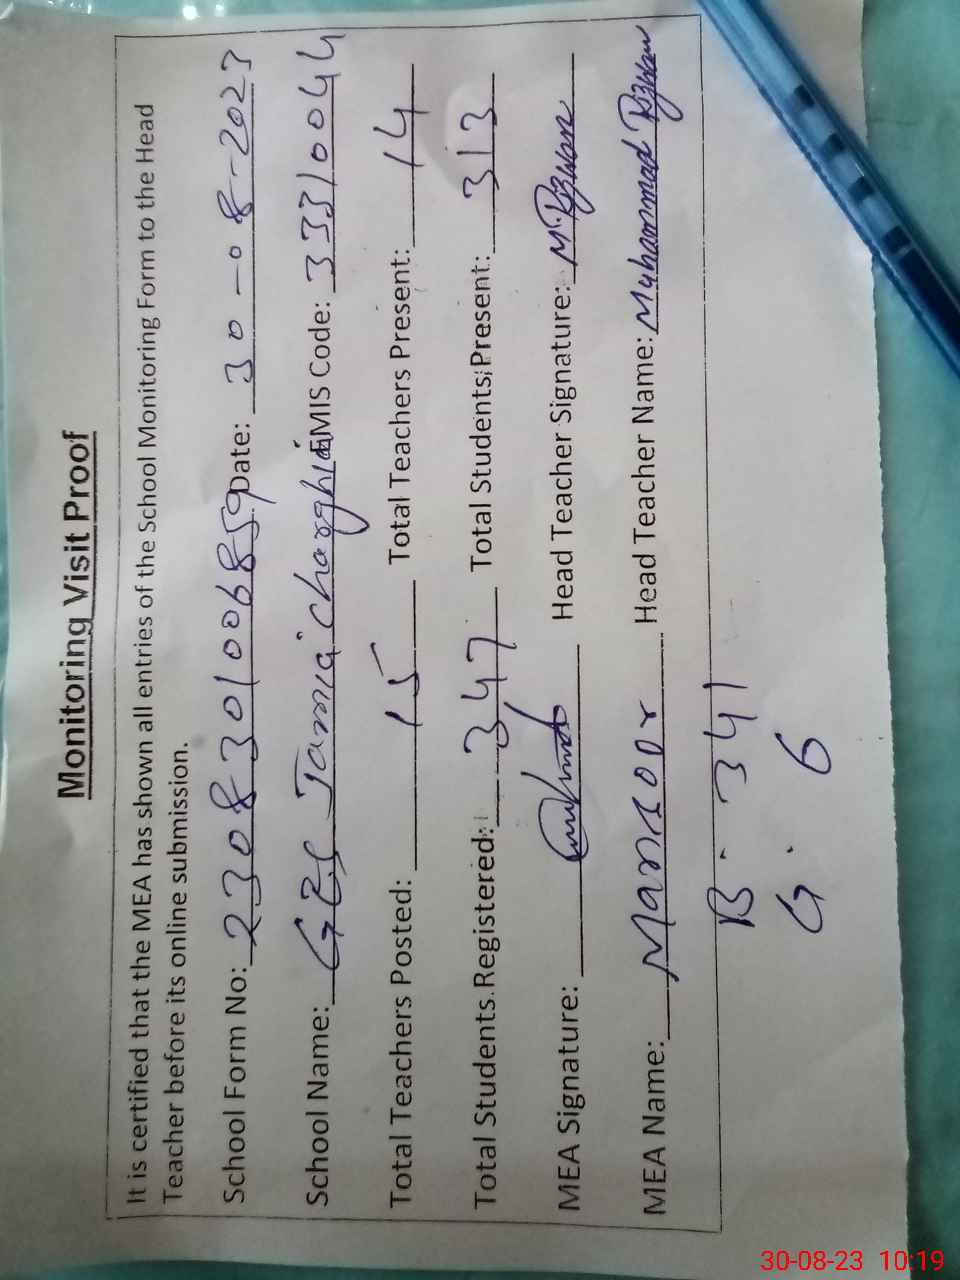 Monitoring Visit Proof
It is certified that the MEA has shown all entries of the School Monitoring Form to the Head
Teacher before its online submission.
School Form No: 2308301006859 Date: 30-08-2023
School Name: GES Jamia Charghia EMIS Code: 33331044
Total Teachers Posted: 15 Total Teachers Present: 14
Total Students Registered: 347 Total Students Present: 313
MEA Signature: Head Teacher Signature: M. Rizwan
MEA Name: Mansoor Head Teacher Name: Muhammad Rizwan
B. 341
G. 6
30-08-23 10:19